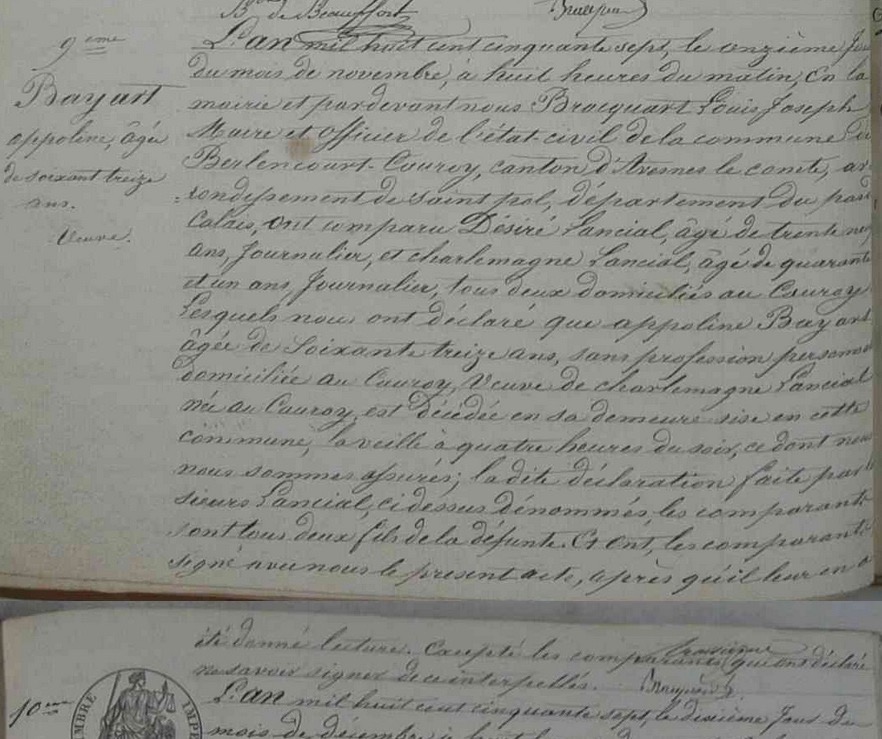 de Beauffort Bracquart
9eme
Bayart
appoline, âgée
de soixante treize
ans.
Veuve.
L'an mil huit cent cinquante sept, le onzième Jour
du mois de novembre, à huit heures du matin, En la
mairie et pardevant nous Bracquart Louis Joseph
Maire et officier de l'état-civil de la commune de
Berlencourt-Cauroy, canton d'Avesnes le comte, ar
rondissement de saint pol, département du pas de
Calais, Ont comparu Désiré Lancial, âgé de trente neuf
ans, Journalier, et charlemagne Lancial, âgé de quarante
et un ans, Journalier, tous deux domiciliés au Cauroy
Lesquels nous ont déclaré que appoline Bayart
âgée de Soixante treize ans, sans profession
domiciliée au Cauroy, Veuve de charlemagne Lancial
née au Cauroy, est Décédée en sa demeure sise en cette
commune, la veille à quatre heures du soir, ce dont nous
nous sommes assurés; la dite déclaration faite par
sieurs Lancial, ci dessus dénommés, les comparants
sont tous deux fils de la défunte. Et Ont, les comparants
signé avec nous le présent acte, après qu'il leur en a
été donné lecture. Excepté les comparants, qui ont déclaré
ne savoir signer de ce interpellés.
10eme
L'an mil huit cent cinquante sept, le dixième Jour du
mois de décembre